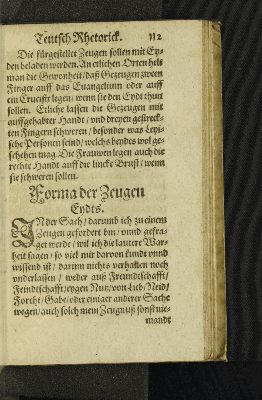 Teutsch Rhetorick. 112
Die fürgestellet Zeugen sollen mit Ey-
den beladen werden. An etlichen Orten helt
man die Gewonheit / daß Gezeugen zween
Finger auff das Euangelium oder auff
ein Crucifix legen / wenn sie den Eydt thun
sollen. Etliche lassen die Gezeugen mit
auffgehabter Handt / vnd dreyen gestreck-
ten Fingern schweren / besonder was Leyi-
sche Personen seind / welchs beydes wol ge-
schehen mag. Die Frauwen legen auch die
rechte Handt auff die lincke Brust / wenn
sie schweren sollen.
Forma der Zeugen
Eydts.
IN der Sach / darumb ich zu einem
Zeugen gefordert bin / vnnd gefra-
get werde / wil ich die lautere War-
heit sagen / so viel mir daruon kundt vnnd
wissend ist / darinn nichts verhalten noch
vnderlassen / weder auß Freundtschafft /
Feindtschafft / eygen Nutz / von Lieb / Neid /
Forcht / Gabe / oder einiger anderer Sache
wegen / auch solch mein Zeugnuß sonst nie-
mandt